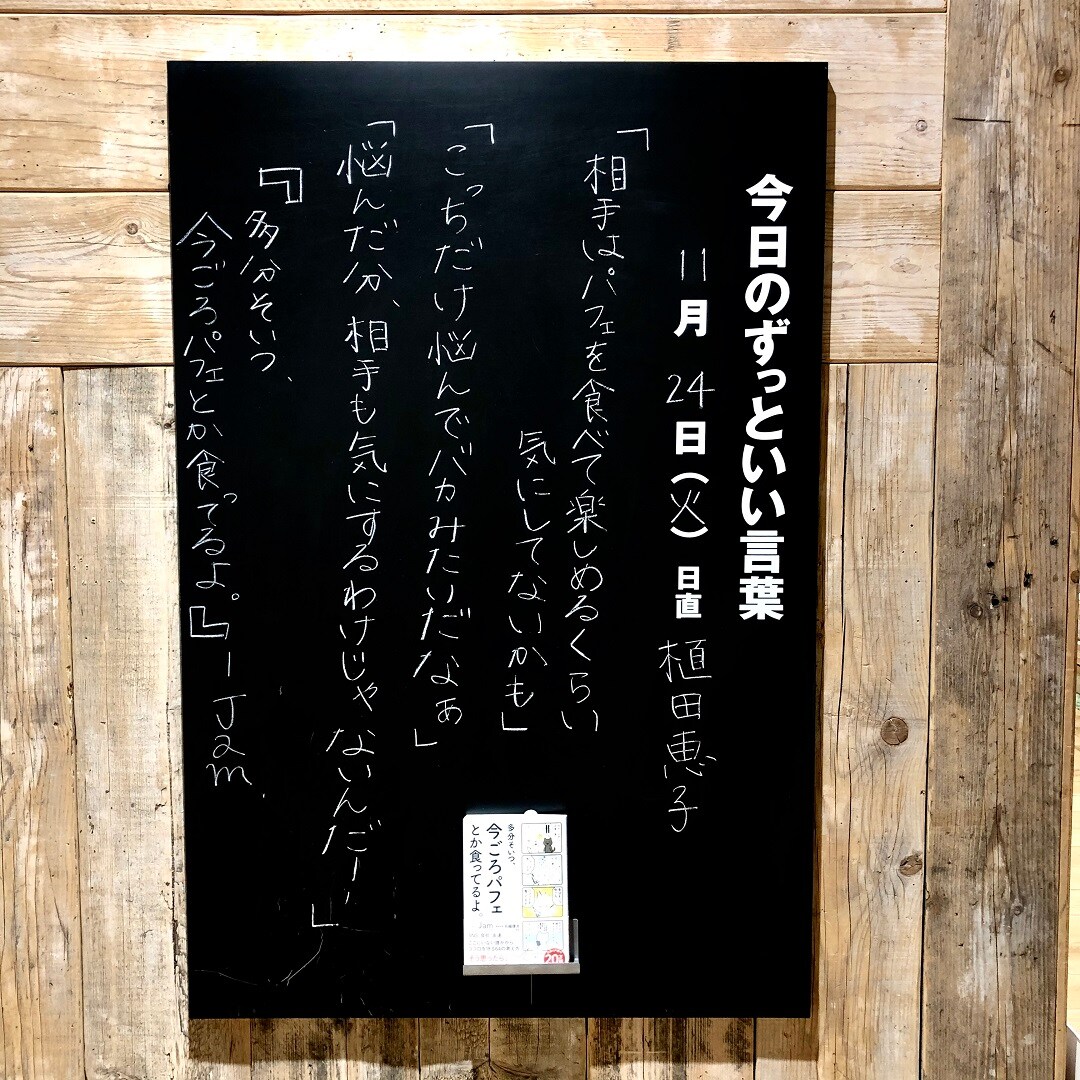 今日のずっといい言葉
11月24日(火) 日直 植田恵子
「相手はパフェを食べて楽しめるくらい
気にしてないかも」
「こっちだけ悩んでバカみたいだなぁ」
「悩んだ分、相手も気にするわけじゃないんだー」
『多分そいつ、
今ごろパフェとか食ってるよ。』ーJam.
多分そいつ、
今ごろパフェ
とか食ってるよ。
Jam